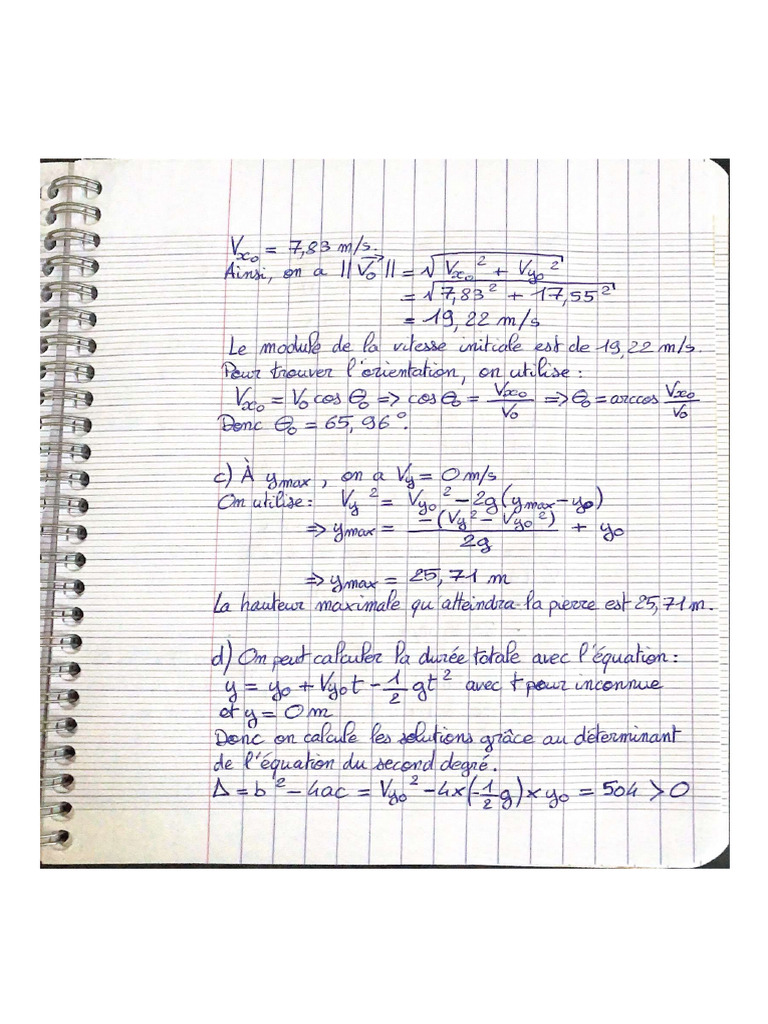 Vx₀ = 7,83 m/s.
Ainsi, on a ||V₀→|| = √(Vx₀² + Vy₀²)
= √(7,83² + 17,55²)
= 19,22 m/s
Le module de la vitesse initiale est de 19,22 m/s.
Pour trouver l'orientation, on utilise :
Vx₀ = V₀ cos θ₀ => cos θ₀ = Vx₀/V₀ => θ₀ = arccos Vx₀/V₀
Donc θ₀ = 65,96°.
c) À ymax, on a Vy = 0 m/s
On utilise : Vy² = Vy₀² - 2g(ymax - y₀)
=> ymax = -(Vy² - Vy₀²)/2g + y₀
=> ymax = 25,71 m
La hauteur maximale qu'atteindra la pierre est 25,71 m.
d) On peut calculer la durée totale avec l'équation :
y = y₀ + Vy₀t - 1/2 gt² avec t pour inconnue
et y = 0 m
Donc on calcule les solutions grâce au déterminant
de l'équation du second degré.
Δ = b² - 4ac = Vy₀² - 4×(-1/2 g)×y₀ = 504 > 0